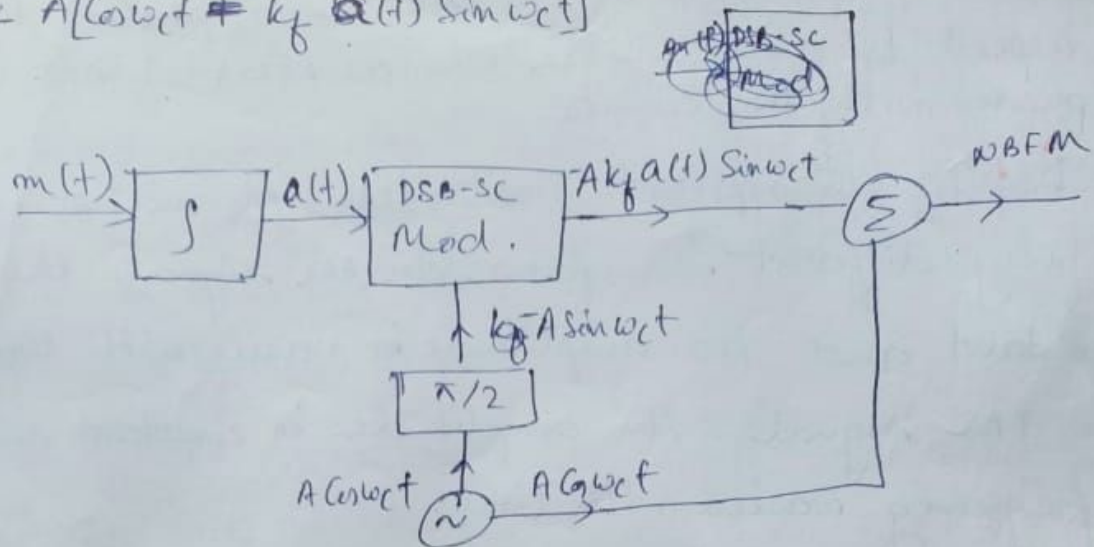 A[Cos ωct = kf a(t) Sin ωct]
DSB-SC
Mod
m(t)
∫
a(t)
DSB-SC
Mod.
-Akf a(t) Sin ωct
Σ
NBFM
-A sin ωct
π/2
A Cos ωct
A Cos ωct
~